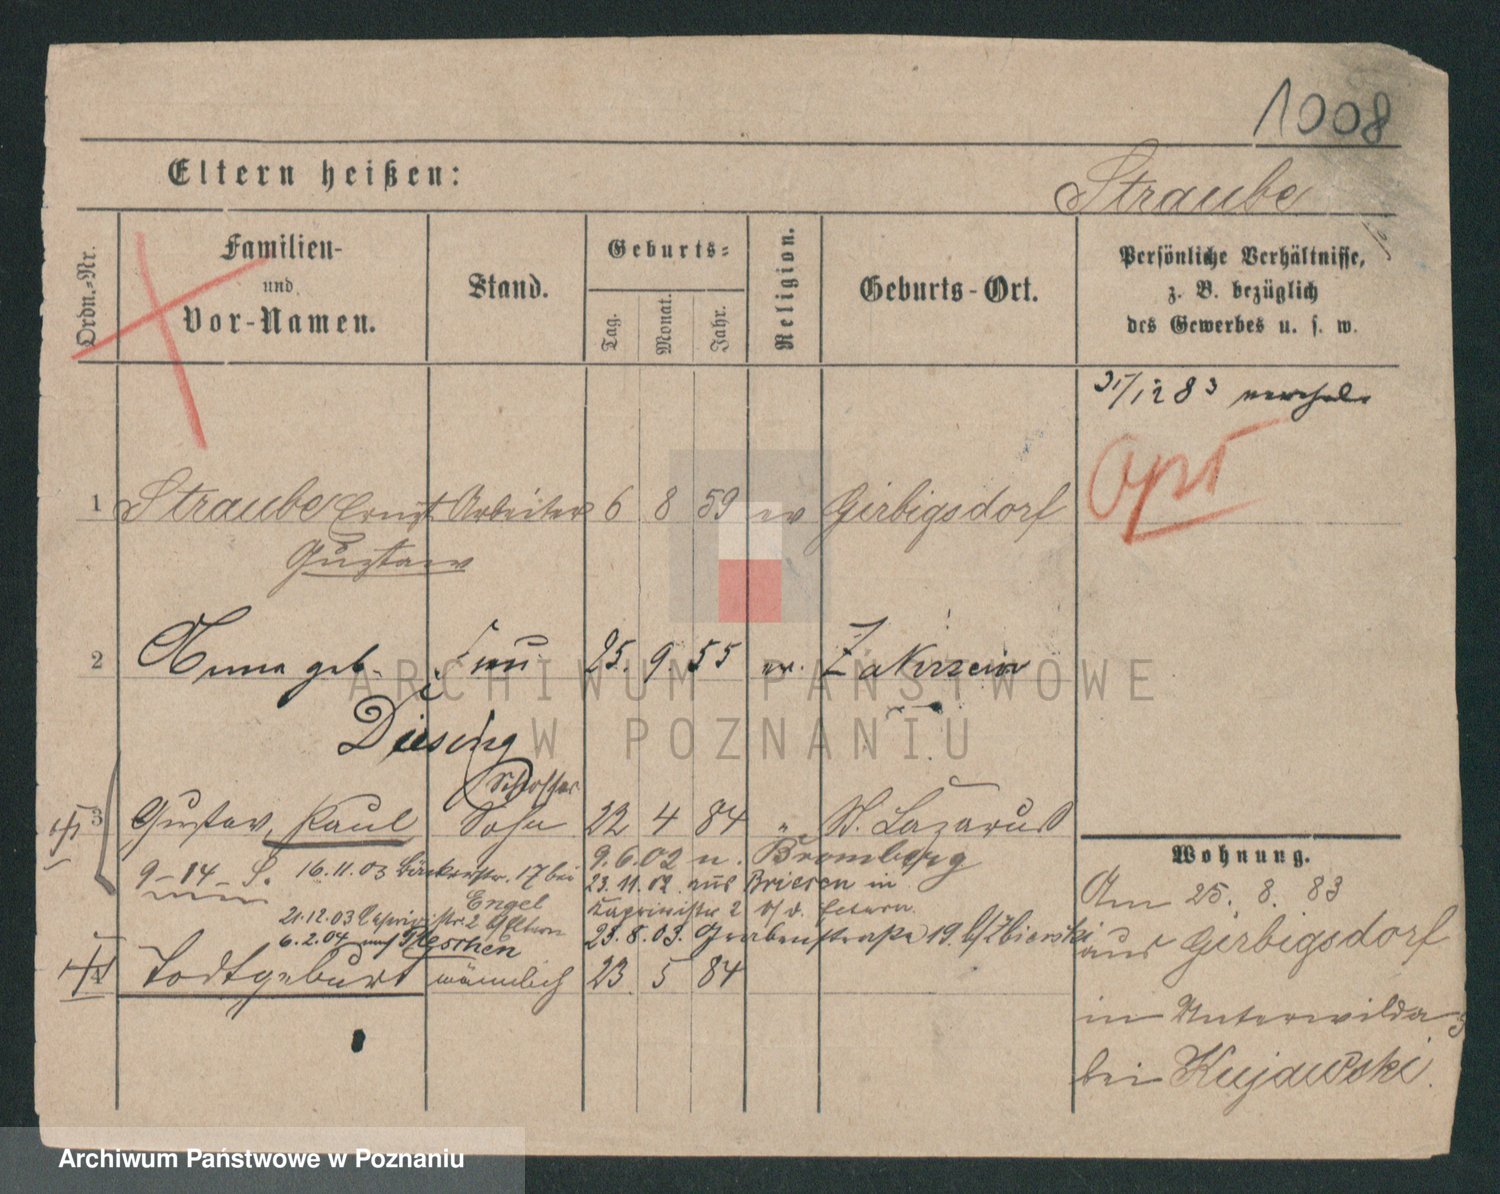 1008
Eltern heißen:
Straube
Ordn.-Nr.
Familien-
und
Vor-Namen.
Stand.
Geburts-
Tag.
Monat.
Jahr.
Religion.
Geburts-Ort.
Persönliche Verhältnisse,
z. B. bezüglich
des Gewerbes u. s. w.
31/12 83
1 Straube Ernst Arbeiter 6 8 59 ev Girbigsdorf
Gustav
2 Anna geb. Frau 25. 9. 55 ev. Zakrzewie
Diesing
Schlosser
3 Gustav, Paul Sohn 22 4 84 " St. Lazarus
9. 6. 02 n. Bromberg
16.11.03 Bäckerstr. 17 bei
Engel
23.11.02 aus Briesen in
Kaprinistr 2 b/ d. Eltern.
21.12.03 Caprivistr. 2 b/Eltern
6.2.04 auf Pleschen
23.8.03. Grabenstraße 19. b/Zbierski
4 Todtgeburt männlich 23 5 84
Wohnung.
Am 25. 8. 83
aus Girbigsdorf
in Unterwilda
bei Kujawski.
ARCHIWUM PAŃSTWOWE
W POZNANIU
Archiwum Państwowe w Poznaniu